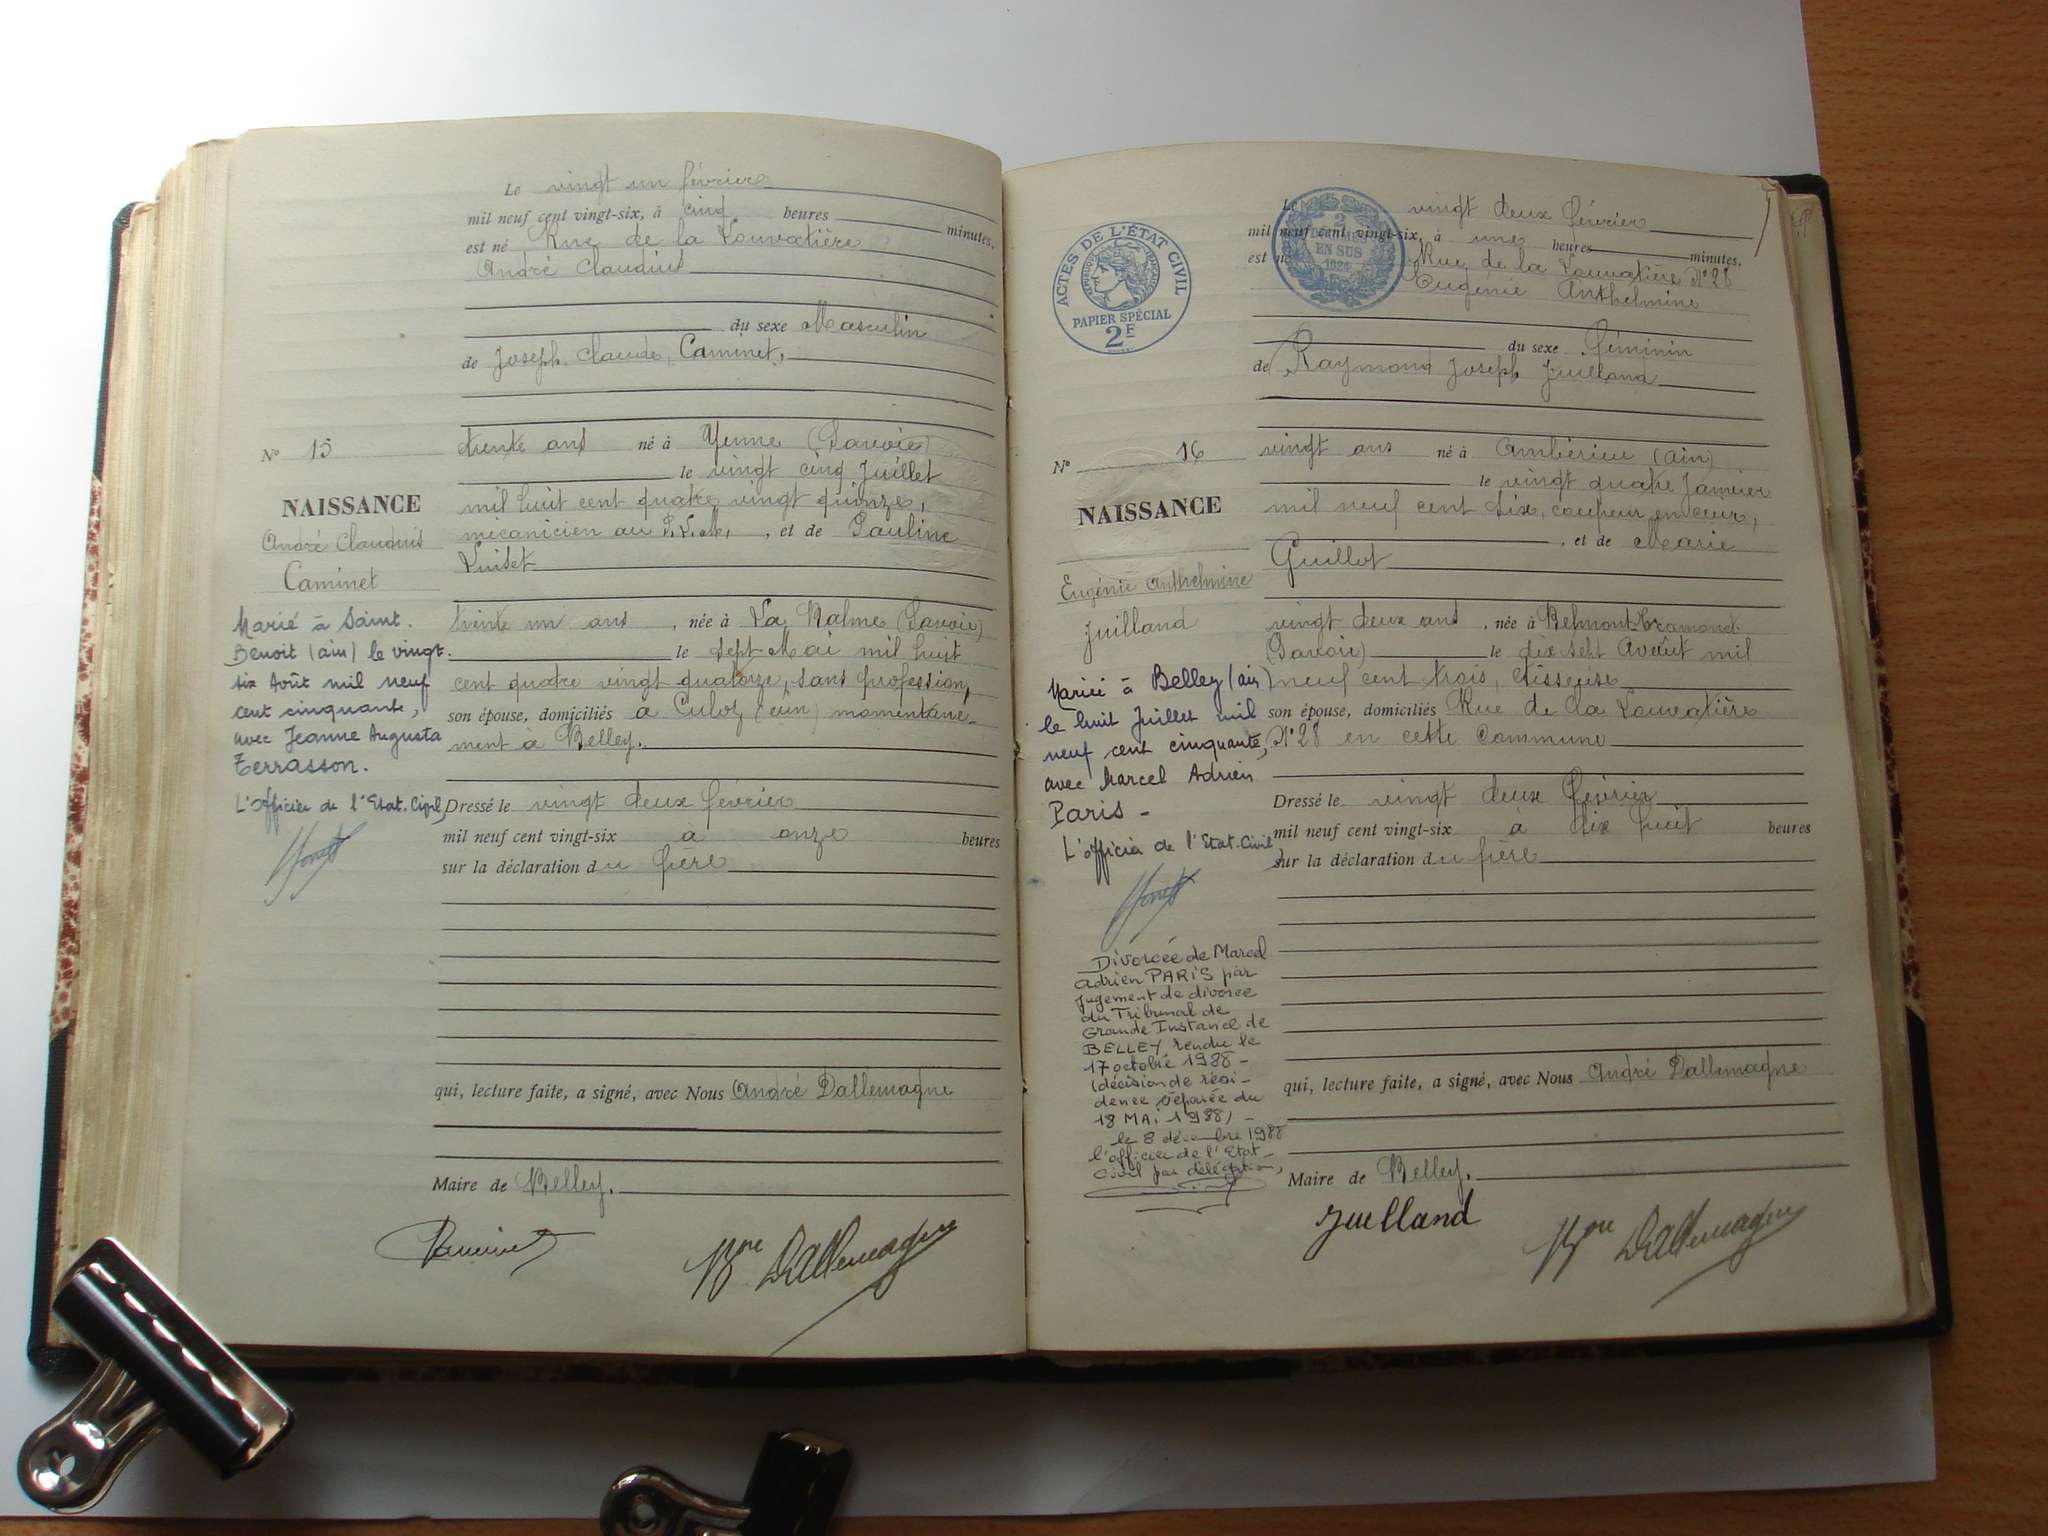 Le vingt un février
mil neuf cent vingt-six, à cinq heures minutes,
est né Rue de la Louvatière
André Claudius
du sexe Masculin
de Joseph Claude, Caminet,
N° 15
trente ans né à Yenne (Savoie)
le vingt cinq Juillet
NAISSANCE
mil huit cent quatre vingt quinze,
mécanicien au P.L.M, , et de Pauline
André Claudius
Luiset
Caminet
Marié à Saint.
Benoit (ain) le vingt.
six Août mil neuf
cent cinquante,
avec Jeanne Augusta
Terrasson.
L'Officier de l'Etat.Civil,
trente un ans , née à La Balme (Savoie)
le sept Mai mil huit
cent quatre vingt quatorze, sans profession,
son épouse, domiciliés à Culoz (ain) momentané-
ment à Belley.
Dressé le vingt deux février
mil neuf cent vingt-six à onze heures
sur la déclaration du père
qui, lecture faite, a signé, avec Nous André Dallemagne
Maire de Belley.
Caminet
Bon Dallemagne
ACTES DE L'ÉTAT CIVIL
PAPIER SPÉCIAL
2F
2
EN SUS
Le vingt deux février
mil neuf cent vingt-six, à une heures minutes,
est né Rue de la Louvatière N°28
Eugénie Anthelmine
du sexe féminin
de Raymond Joseph Juilland
N° 16
vingt ans né à Ambérieu (ain)
le vingt quatre Janvier
NAISSANCE
mil neuf cent six, coupeur en cuir,
, et de Marie
Guillot
Eugénie Anthelmine
Juilland
Mariée à Belley (ain)
le huit Juillet mil
neuf cent cinquante,
avec Marcel Adrien
Paris -
L'officier de l'Etat.Civil,
Divorcée de Marcel
Adrien PARIS par
jugement de divorce
du Tribunal de
Grande Instance de
BELLEY rendu le
17 octobre 1988 -
(décision de rési-
dence séparée du
18 MAI 1988) -
le 8 décembre 1988
l'officier de l'Etat-
Civil par délégation,
vingt deux ans , née à Belmont-Tramonet
(Savoie) le dix sept Avôut mil
neuf cent trois, tisseuse
son épouse, domiciliés Rue de la Louvatière
N°28 en cette Commune
Dressé le vingt deux février
mil neuf cent vingt-six à dix huit heures
sur la déclaration du père
qui, lecture faite, a signé, avec Nous André Dallemagne
Maire de Belley.
Juilland
Bon Dallemagne